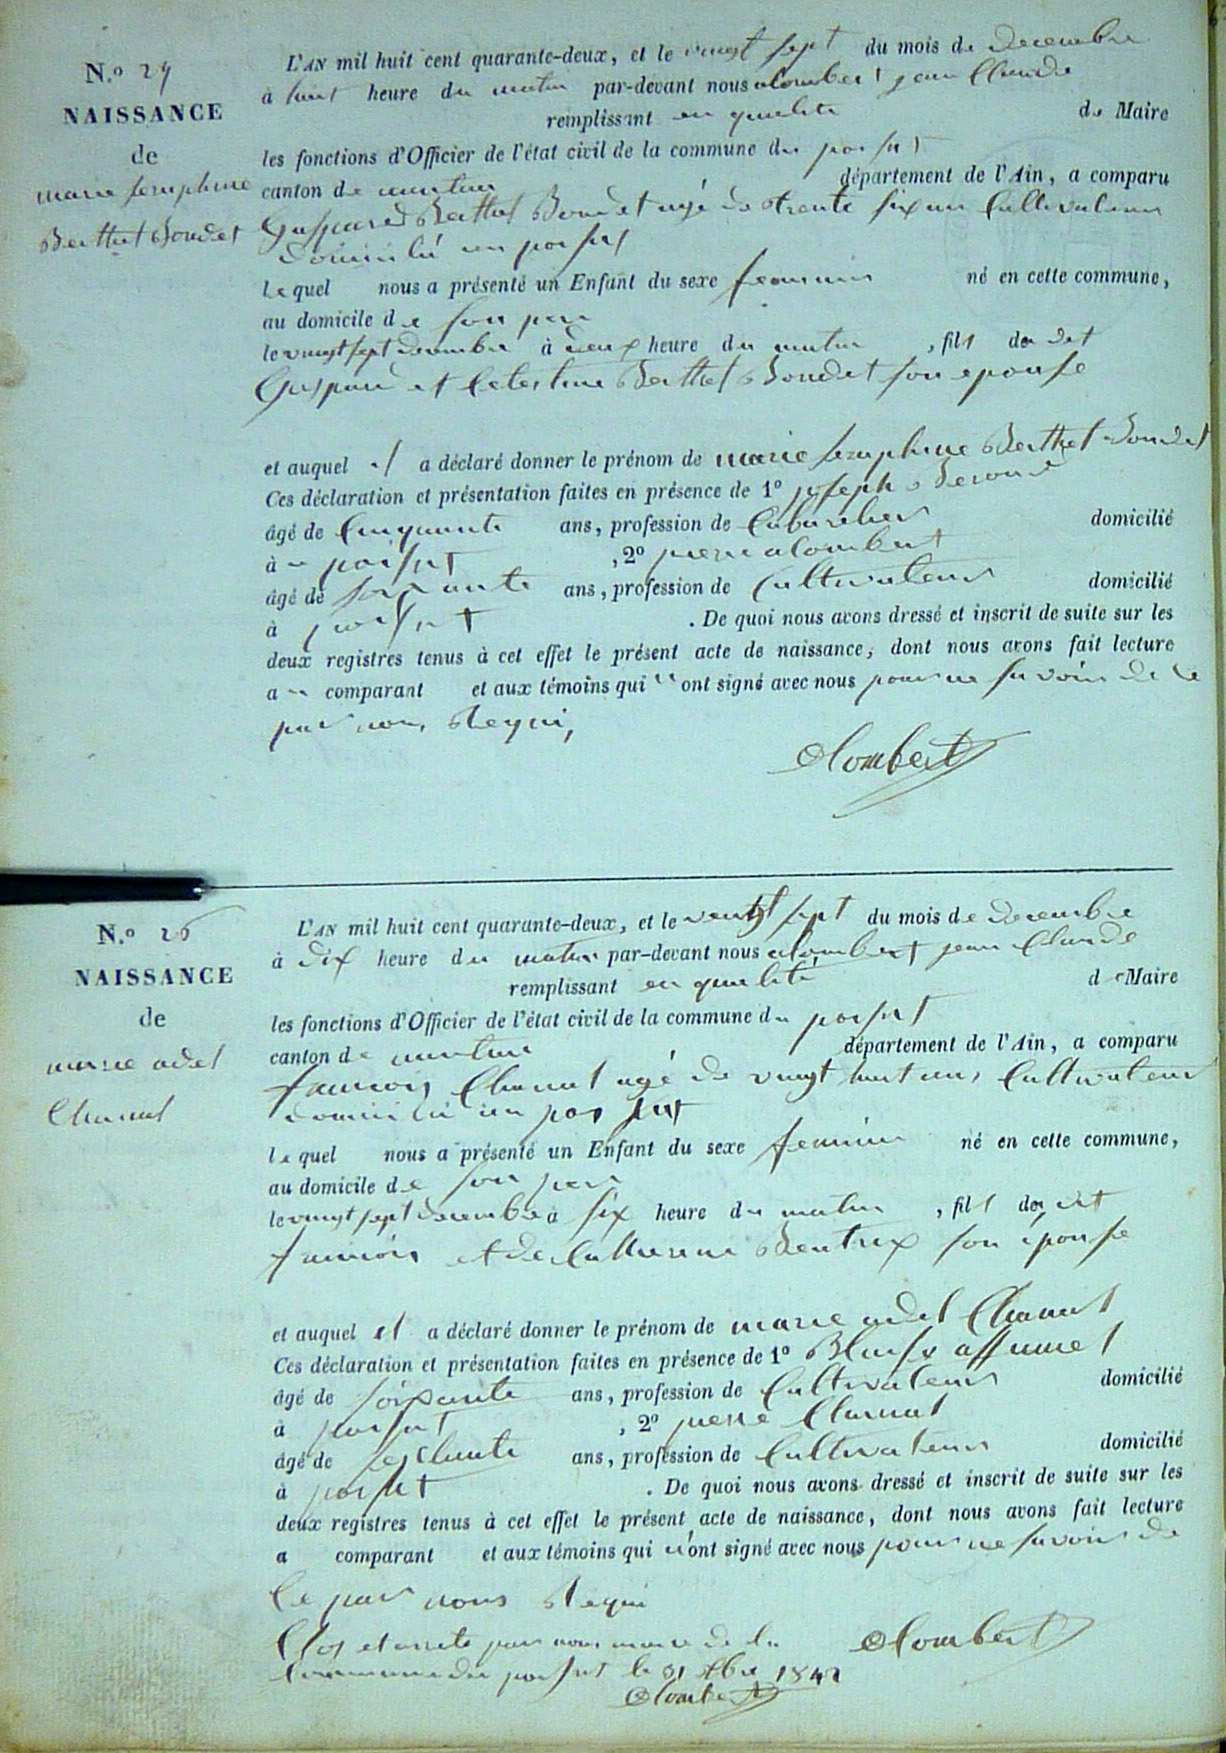 N.o 25
NAISSANCE
de
marie seraphine
Berthet Bondet
L'AN mil huit cent quarante-deux, et le vingt sept du mois de decembre
à huit heure du matin par-devant nous alombert jean Claude
remplissant en qualite de Maire
les fonctions d'Officier de l'état civil de la commune du poisat
canton de nantua département de l'Ain, a comparu
Gaspared Berthet Bondet agé de trente six an Cultivateur
domicilié au poisat
lequel nous a présenté un Enfant du sexe feminin né en cette commune,
au domicile de son pere
le vingt sept decembre à deux heure du matin , fils du dit
Gaspard et Celestine Berthet Bondet son epouse
et auquel il a déclaré donner le prénom de marie seraphine Berthet Bondet
Ces déclaration et présentation faites en présence de 1º joseph
âgé de Cinquante ans, profession de Cabaretier domicilié
à au poisat , 2º pierre alombert
âgé de soixante ans, profession de Cultivateur domicilié
à poisat . De quoi nous avons dressé et inscrit de suite sur les
deux registres tenus à cet effet le présent acte de naissance, dont nous avons fait lecture
a u comparant et aux témoins qui n ont signé avec nous pour ne savoir de ce
par nous Requi,
Alombert
N.o 26
NAISSANCE
de
marie adel
Chanal
L'AN mil huit cent quarante-deux, et le vingt sept du mois de decembre
à dix heure du matin par-devant nous alombert jean Claude
remplissant en qualité de Maire
les fonctions d'Officier de l'état civil de la commune du poisat
canton de nantua département de l'Ain, a comparu
francois Chanal agé de vingt huit ans, Cultivateur
domicilié au poisat
lequel nous a présenté un Enfant du sexe feminin né en cette commune,
au domicile de son pere
le vingt sept decembre à six heure du matin , fils du dit
francois et de Catherine Beatrix son épouse
et auquel il a déclaré donner le prénom de marie adel Chanal
Ces déclaration et présentation faites en présence de 1º
âgé de soixante ans, profession de Cultivateur domicilié
à poisat , 2º pierre Chanal
âgé de ans, profession de Cultivateur domicilié
à poisat . De quoi nous avons dressé et inscrit de suite sur les
deux registres tenus à cet effet le présent acte de naissance, dont nous avons fait lecture
a comparant et aux témoins qui n'ont signé avec nous pour ne savoir de
Ce par nous Requi
Clos et arrete par nous maire de la Alombert
Commune du poisat le 31 Xbre 1842
Alombert